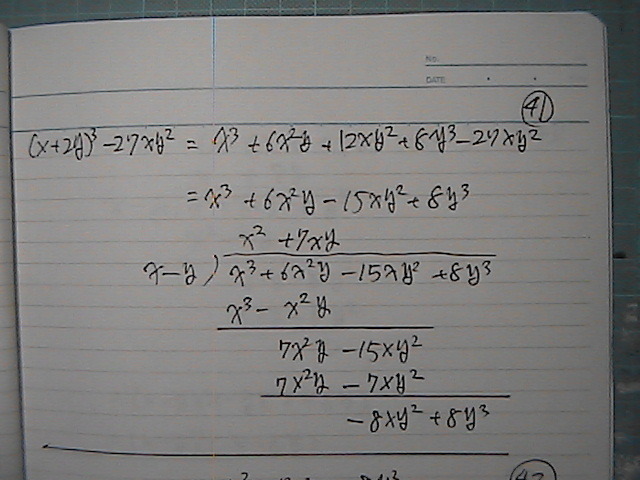 No.
DATE
41
(x+2y)³ -27xy² = x³ +6x²y +12xy²+8y³-27xy²
= x³ +6x²y -15xy²+8y³
x² +7xy
x-y ) x³+6x²y -15xy² +8y³
x³- x²y
7x²y -15xy²
7x²y - 7xy²
-8xy² +8y³